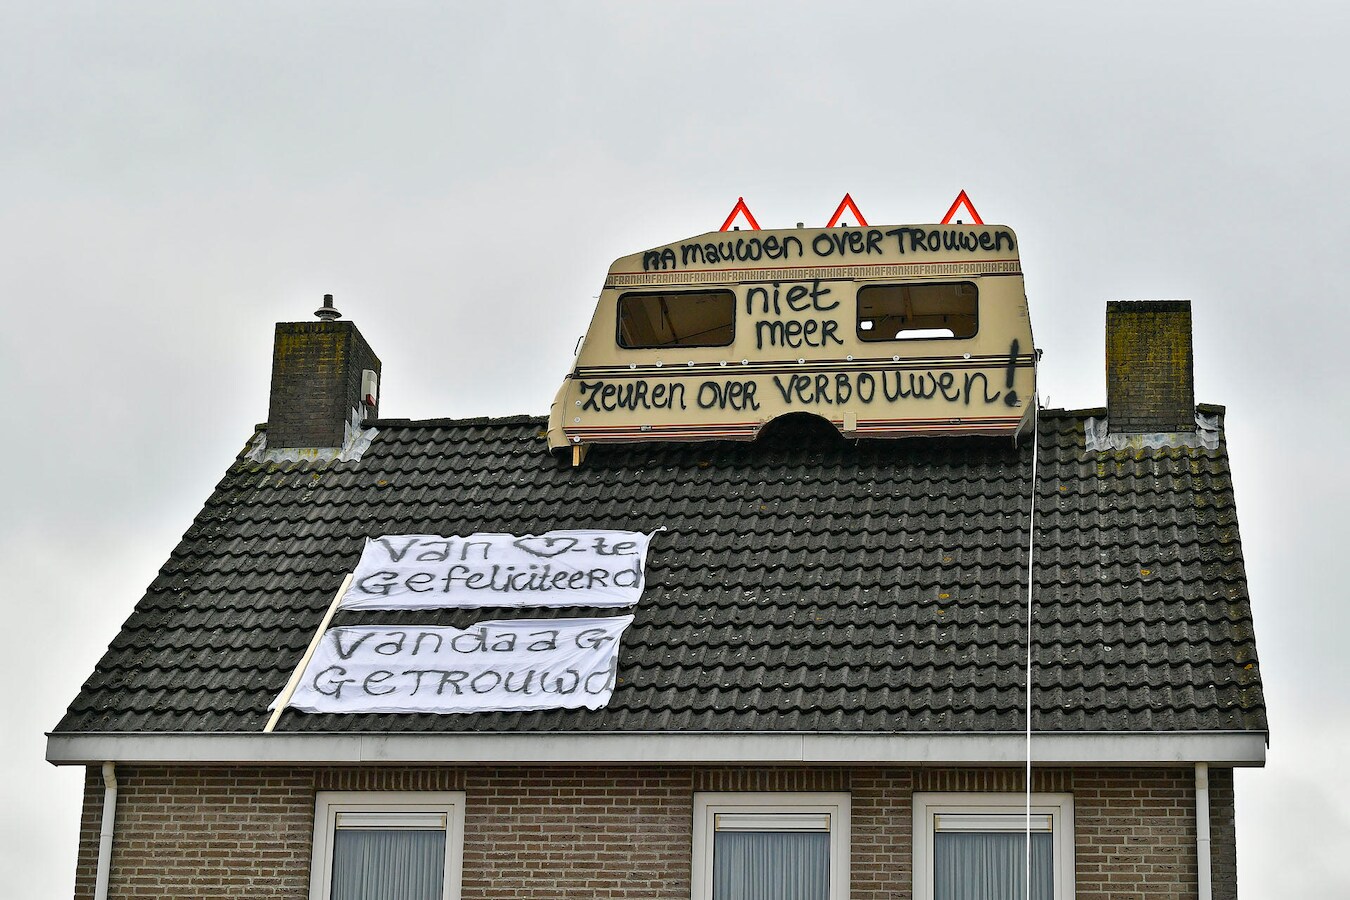 NA mauwen OVER TROUWEN
AFRANKIAFRANKIAFRANKIAFRANKIAFRANKIAFRANKIAFRANKIAFRANKIA
niet
MEER
ZEUREN OVER VERBOUWEN!
Van ♡-te
Gefeliciteerd
Vandaag
GETROUWD